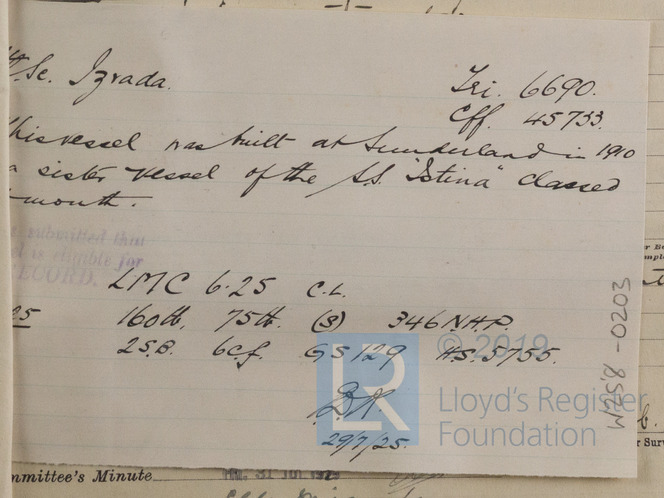 Sc. Izrada.
Tri. 6690.
Cff. 45733.
This vessel was built at Sunderland in 1910
a sister vessel of the S.S. "Istina" classed
month.
submitted that
is eligible for
RECORD.
LMC 6.25 C.L.
25 160 lb. 75 lb. (S) 346 N.H.P.
2 S.B. 6 c.f. GS 129 H.S. 5755.
29/7/25.
W258-0203
© 2019
LR
Lloyd's Register
Foundation
mmittee's Minute
r Sur